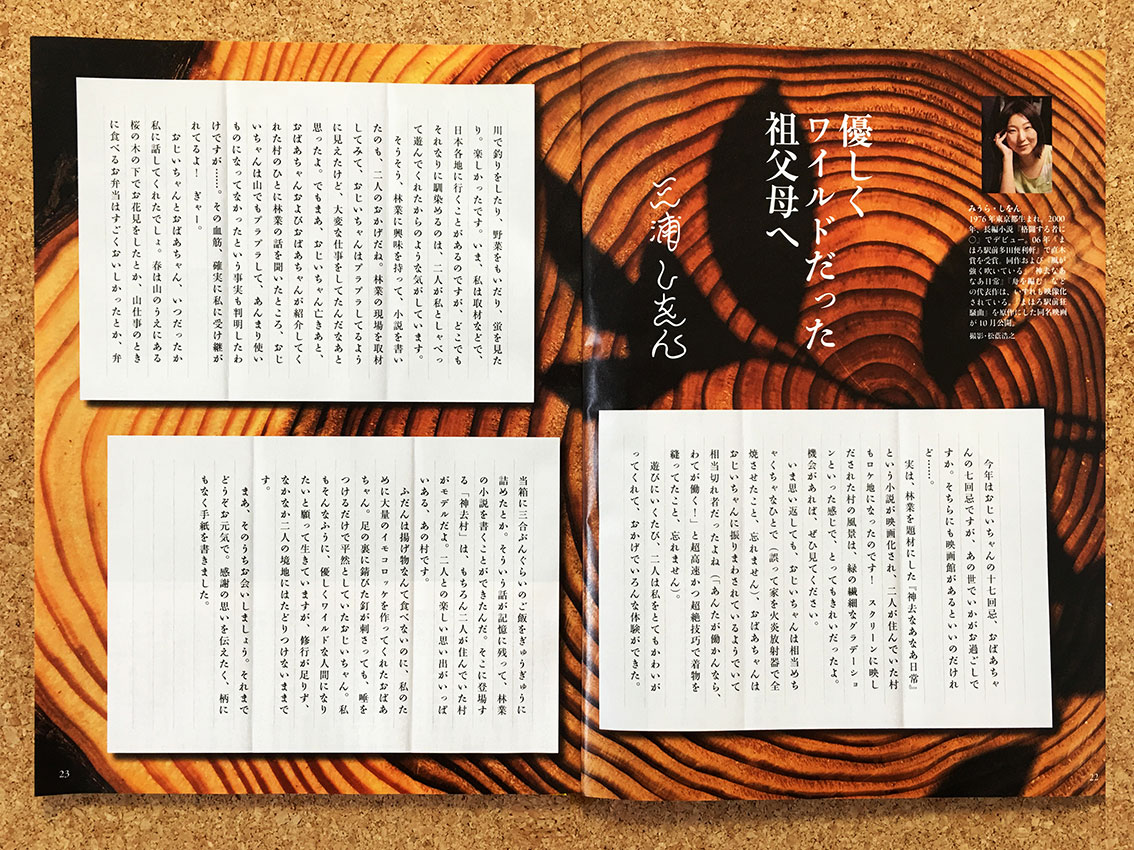 優しく
ワイルドだった
祖父母へ
三浦しをん
みうら・しをん
1976年東京都生まれ。2000
年、長編小説『格闘する者に
○』でデビュー。06年『ま
ほろ駅前多田便利軒』で直木
賞を受賞。同作および『風が
強く吹いている』『神去なあ
なあ日常』『舟を編む』など
の代表作は、いずれも映像化
されている。『まほろ駅前狂
騒曲』を原作にした同名映画
が10月公開。
撮影・松蔭浩之
今年はおじいちゃんの十七回忌、おばあちゃ
んの七回忌ですが、あの世でいかがお過ごしで
すか。そちらにも映画館があるといいのだけれ
ど……。
実は、林業を題材にした『神去なあなあ日常』
という小説が映画化され、二人が住んでいた村
もロケ地になったのです！　スクリーンに映し
だされた村の風景は、緑の繊細なグラデーショ
ンといった感じで、とってもきれいだったよ。
機会があれば、ぜひ見てください。
いま思い返しても、おじいちゃんは相当めち
ゃくちゃなひとで（誤って家を火炎放射器で全
焼させたこと、忘れません）、おばあちゃんは
おじいちゃんに振りまわされているようでいて
相当切れ者だったよね（「あんたが働かんなら、
わてが働く！」と超高速かつ超絶技巧で着物を
縫ってたこと、忘れません）。
遊びにいくたび、二人は私をとてもかわいが
ってくれて、おかげでいろんな体験ができた。
川で釣りをしたり、野菜をもいだり、蛍を見た
り。楽しかったです。いま、私は取材などで、
日本各地に行くことがあるのですが、どこでも
それなりに馴染めるのは、二人が私としゃべっ
て遊んでくれたからのような気がしています。
そうそう、林業に興味を持って、小説を書い
たのも、二人のおかげだね。林業の現場を取材
してみて、おじいちゃんはプラプラしてるよう
に見えたけど、大変な仕事をしてたんだなあと
思ったよ。でもまあ、おじいちゃん亡きあと、
おばあちゃんおよびおばあちゃんが紹介してく
れた村のひとに林業の話を聞いたところ、おじ
いちゃんは山でもプラプラして、あんまり使い
ものになってなかったという事実も判明したわ
けですが……。その血筋、確実に私に受け継が
れてるよ！　ぎゃー。
おじいちゃんとおばあちゃん、いつだったか
私に話してくれたでしょ。春は山のうえにある
桜の木の下でお花見をしたとか、山仕事のとき
に食べるお弁当はすごくおいしかったとか、弁
当箱に三合ぶんぐらいのご飯をぎゅうぎゅうに
詰めたとか。そういう話が記憶に残って、林業
の小説を書くことができたんだ。そこに登場す
る「神去村」は、もちろん二人が住んでいた村
がモデルだよ。二人との楽しい思い出がいっぱ
いある、あの村です。
ふだんは揚げ物なんて食べないのに、私のた
めに大量のイモコロッケを作ってくれたおばあ
ちゃん。足の裏に錆びた釘が刺さっても、唾を
つけるだけで平然としていたおじいちゃん。私
もそんなふうに、優しくワイルドな人間になり
たいと願って生きていますが、修行が足りず、
なかなか二人の境地にはたどりつけないままで
す。
まあ、そのうちお会いしましょう。それまで
どうぞお元気で。感謝の思いを伝えたく、柄に
もなく手紙を書きました。
22
23